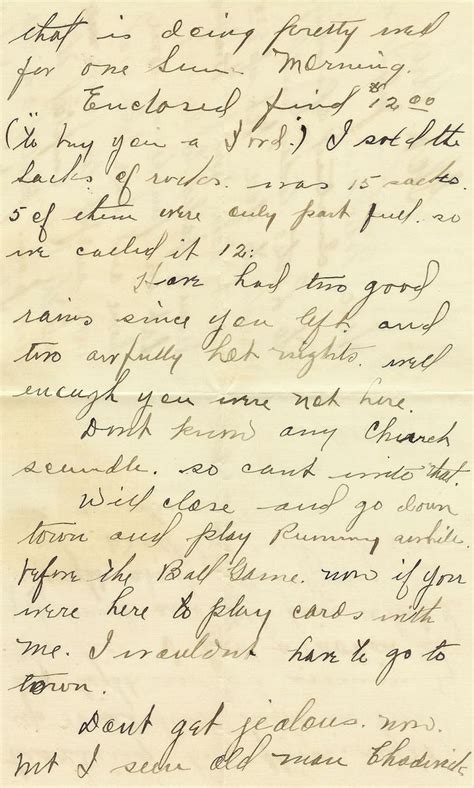 that is doing pretty well
for one Sun Morning.
Enclosed find $12.00
("to buy you a Ford.) I sold the
sacks of rocks. was 15 sacks
5 of them were only part full. so
we called it 12:
Have had two good
rains since you left. and
two awfully hot nights. well
enough you were not here.
Dont know any Church
scandle. so cant write that.
Will close and go down
town and play Rummy awhile.
before the Ball Game. now if you
were here to play cards with
me. I wouldnt have to go to
town.
Dont get jealous. now.
but I seen old man Chadwick